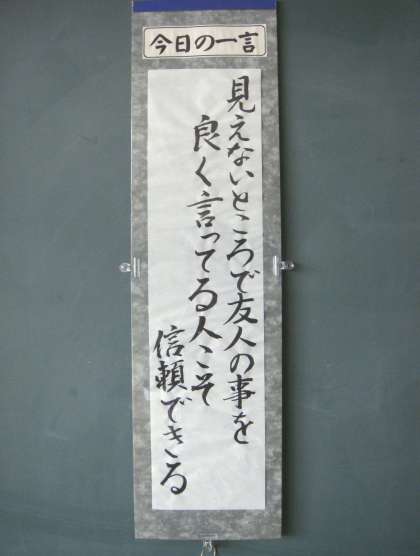 今日の一言
見えないところで友人の事を
良く言ってる人こそ
信頼できる